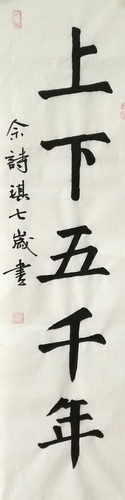 上下五千年
余詩琪七歲書